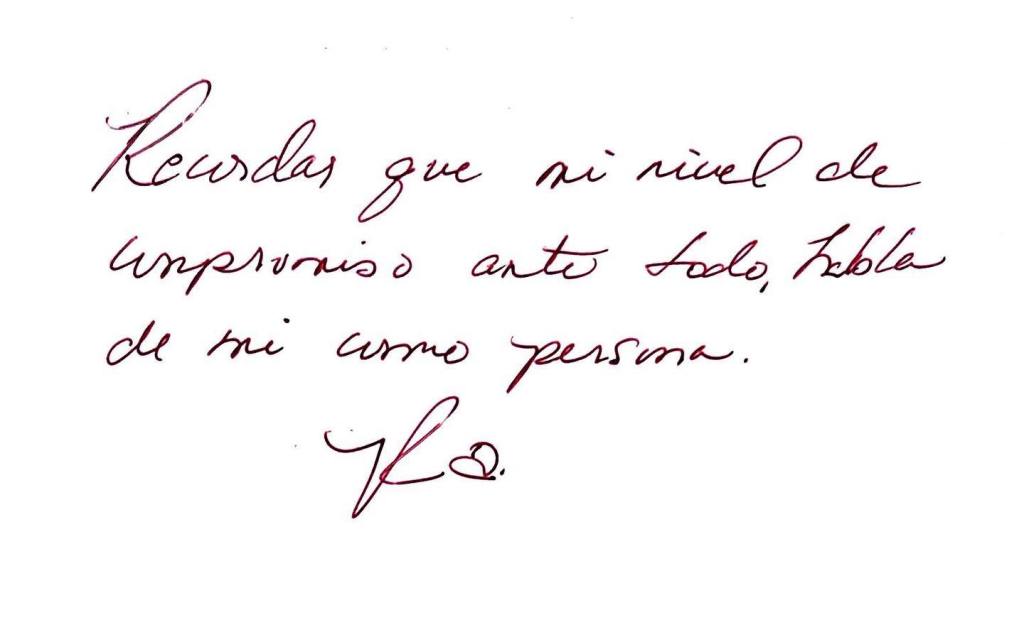 Recordar que mi nivel de
compromiso ante todo, habla
de mi como persona.